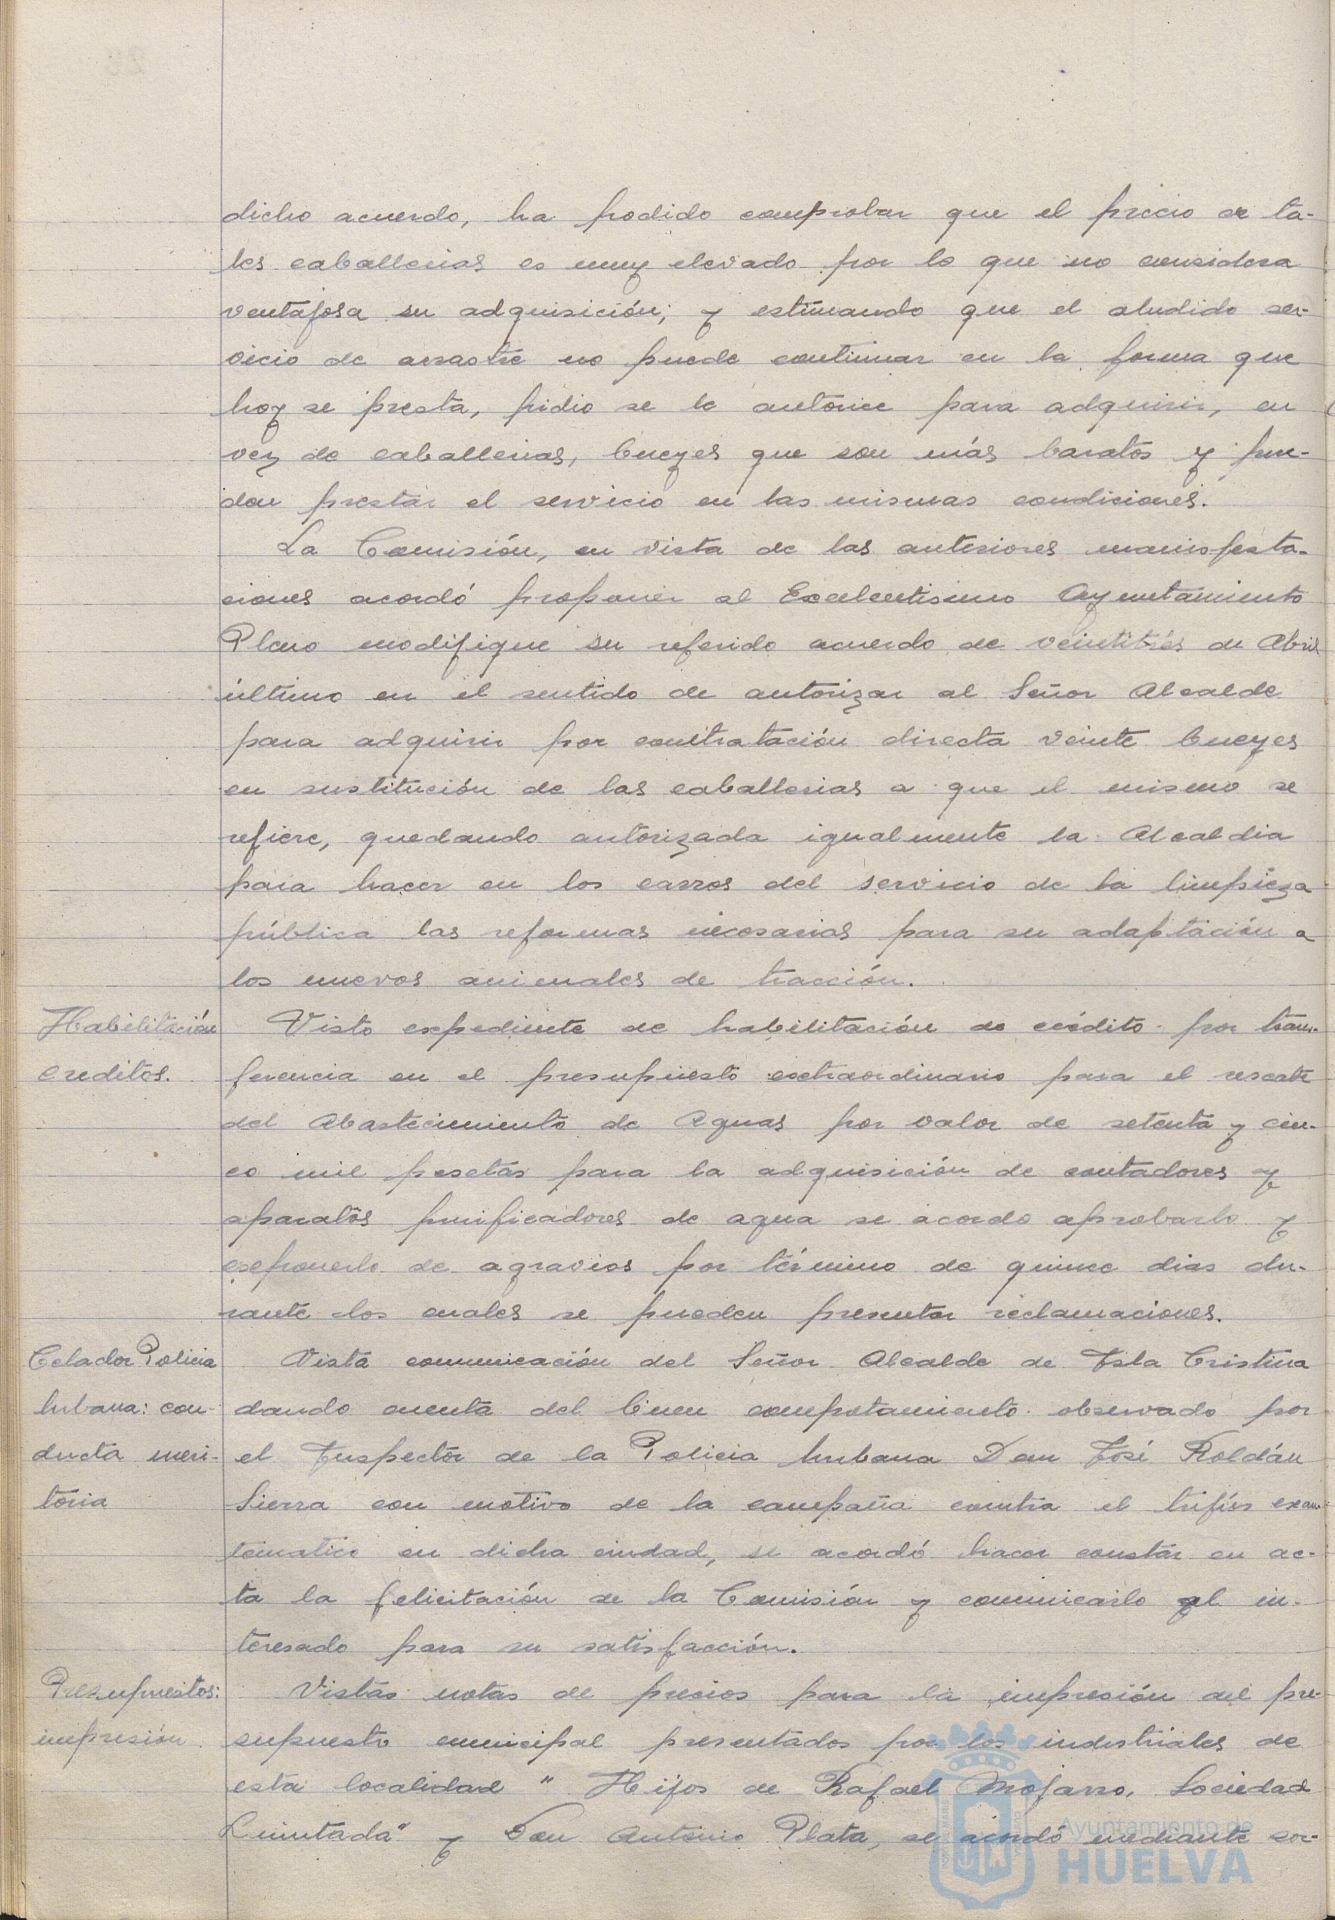 dicho acuerdo, ha podido comprobar que el precio de ta-
les caballerias es muy elevado por lo que no considera
ventajosa su adquisición; y estimando que el aludido ser-
vicio de arrastre no puede continuar en la forma que
hoy se presta, pidio se le autorice para adquirir, en
vez de caballerias, bueyes que son más baratos y pue-
den prestar el servicio en las mismas condiciones.
La Comisión, en vista de las anteriores manifesta-
ciones acordó proponer al Excelentisimo Ayuntamiento
Pleno modifique su referido acuerdo de veintitrés de Abril
último en el sentido de autorizar al Señor Alcalde
para adquirir por contratación directa veinte bueyes
en sustitución de las caballerias a que el mismo se
refiere, quedando autorizada igualmente la Alcaldia
para hacer en los carros del servicio de la limpieza
pública las reformas necesarias para su adaptación a
los nuevos animales de tracción.
Habilitación
creditos.
Visto expediente de habilitación de crédito por trans-
ferencia en el presupuesto extraordinario para el rescate
del Abastecimiento de Aguas por valor de setenta y cin-
co mil pesetas para la adquisición de contadores y
aparatos purificadores de agua se acordo aprobarlo y
exponerlo de agravios por término de quince dias du-
rante los cuales se pueden presentar reclamaciones.
Celador Policia
Urbana: con-
ducta meri-
toria
Vista comunicación del Señor Alcalde de Isla Cristina
dando cuenta del buen compotamiento observado por
el Inspector de la Policia Urbana Don José Roldán
Sierra con motivo de la campaña contra el tifus exan-
tematico en dicha ciudad, se acordó hacer constar en ac-
ta la felicitación de la Comisión y comunicarlo al in-
teresado para su satisfacción.
Presupuestos:
impresión.
Vistas notas de precios para la impresión del pre-
supuesto municipal presentados por los industriales de
esta localidad "Hijos de Rafael Mojarro, Sociedad
Limitada" y Don Antonio Plata, se acordó mediante sor-
Ayuntamiento de
HUELVA